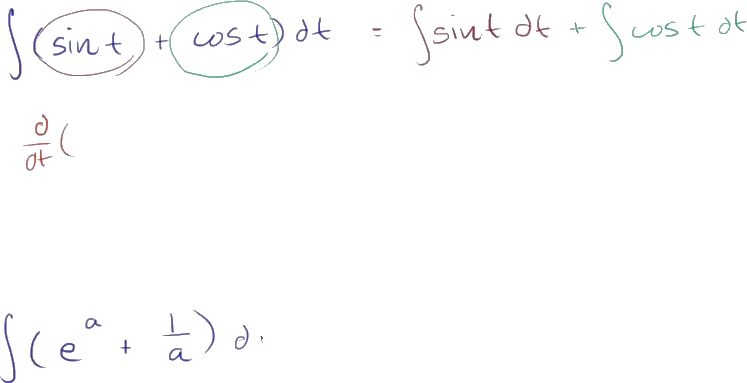 ∫(sin t + cos t) dt = ∫sin t dt + ∫cos t dt
d/dt (
∫(e^a + 1/a) d